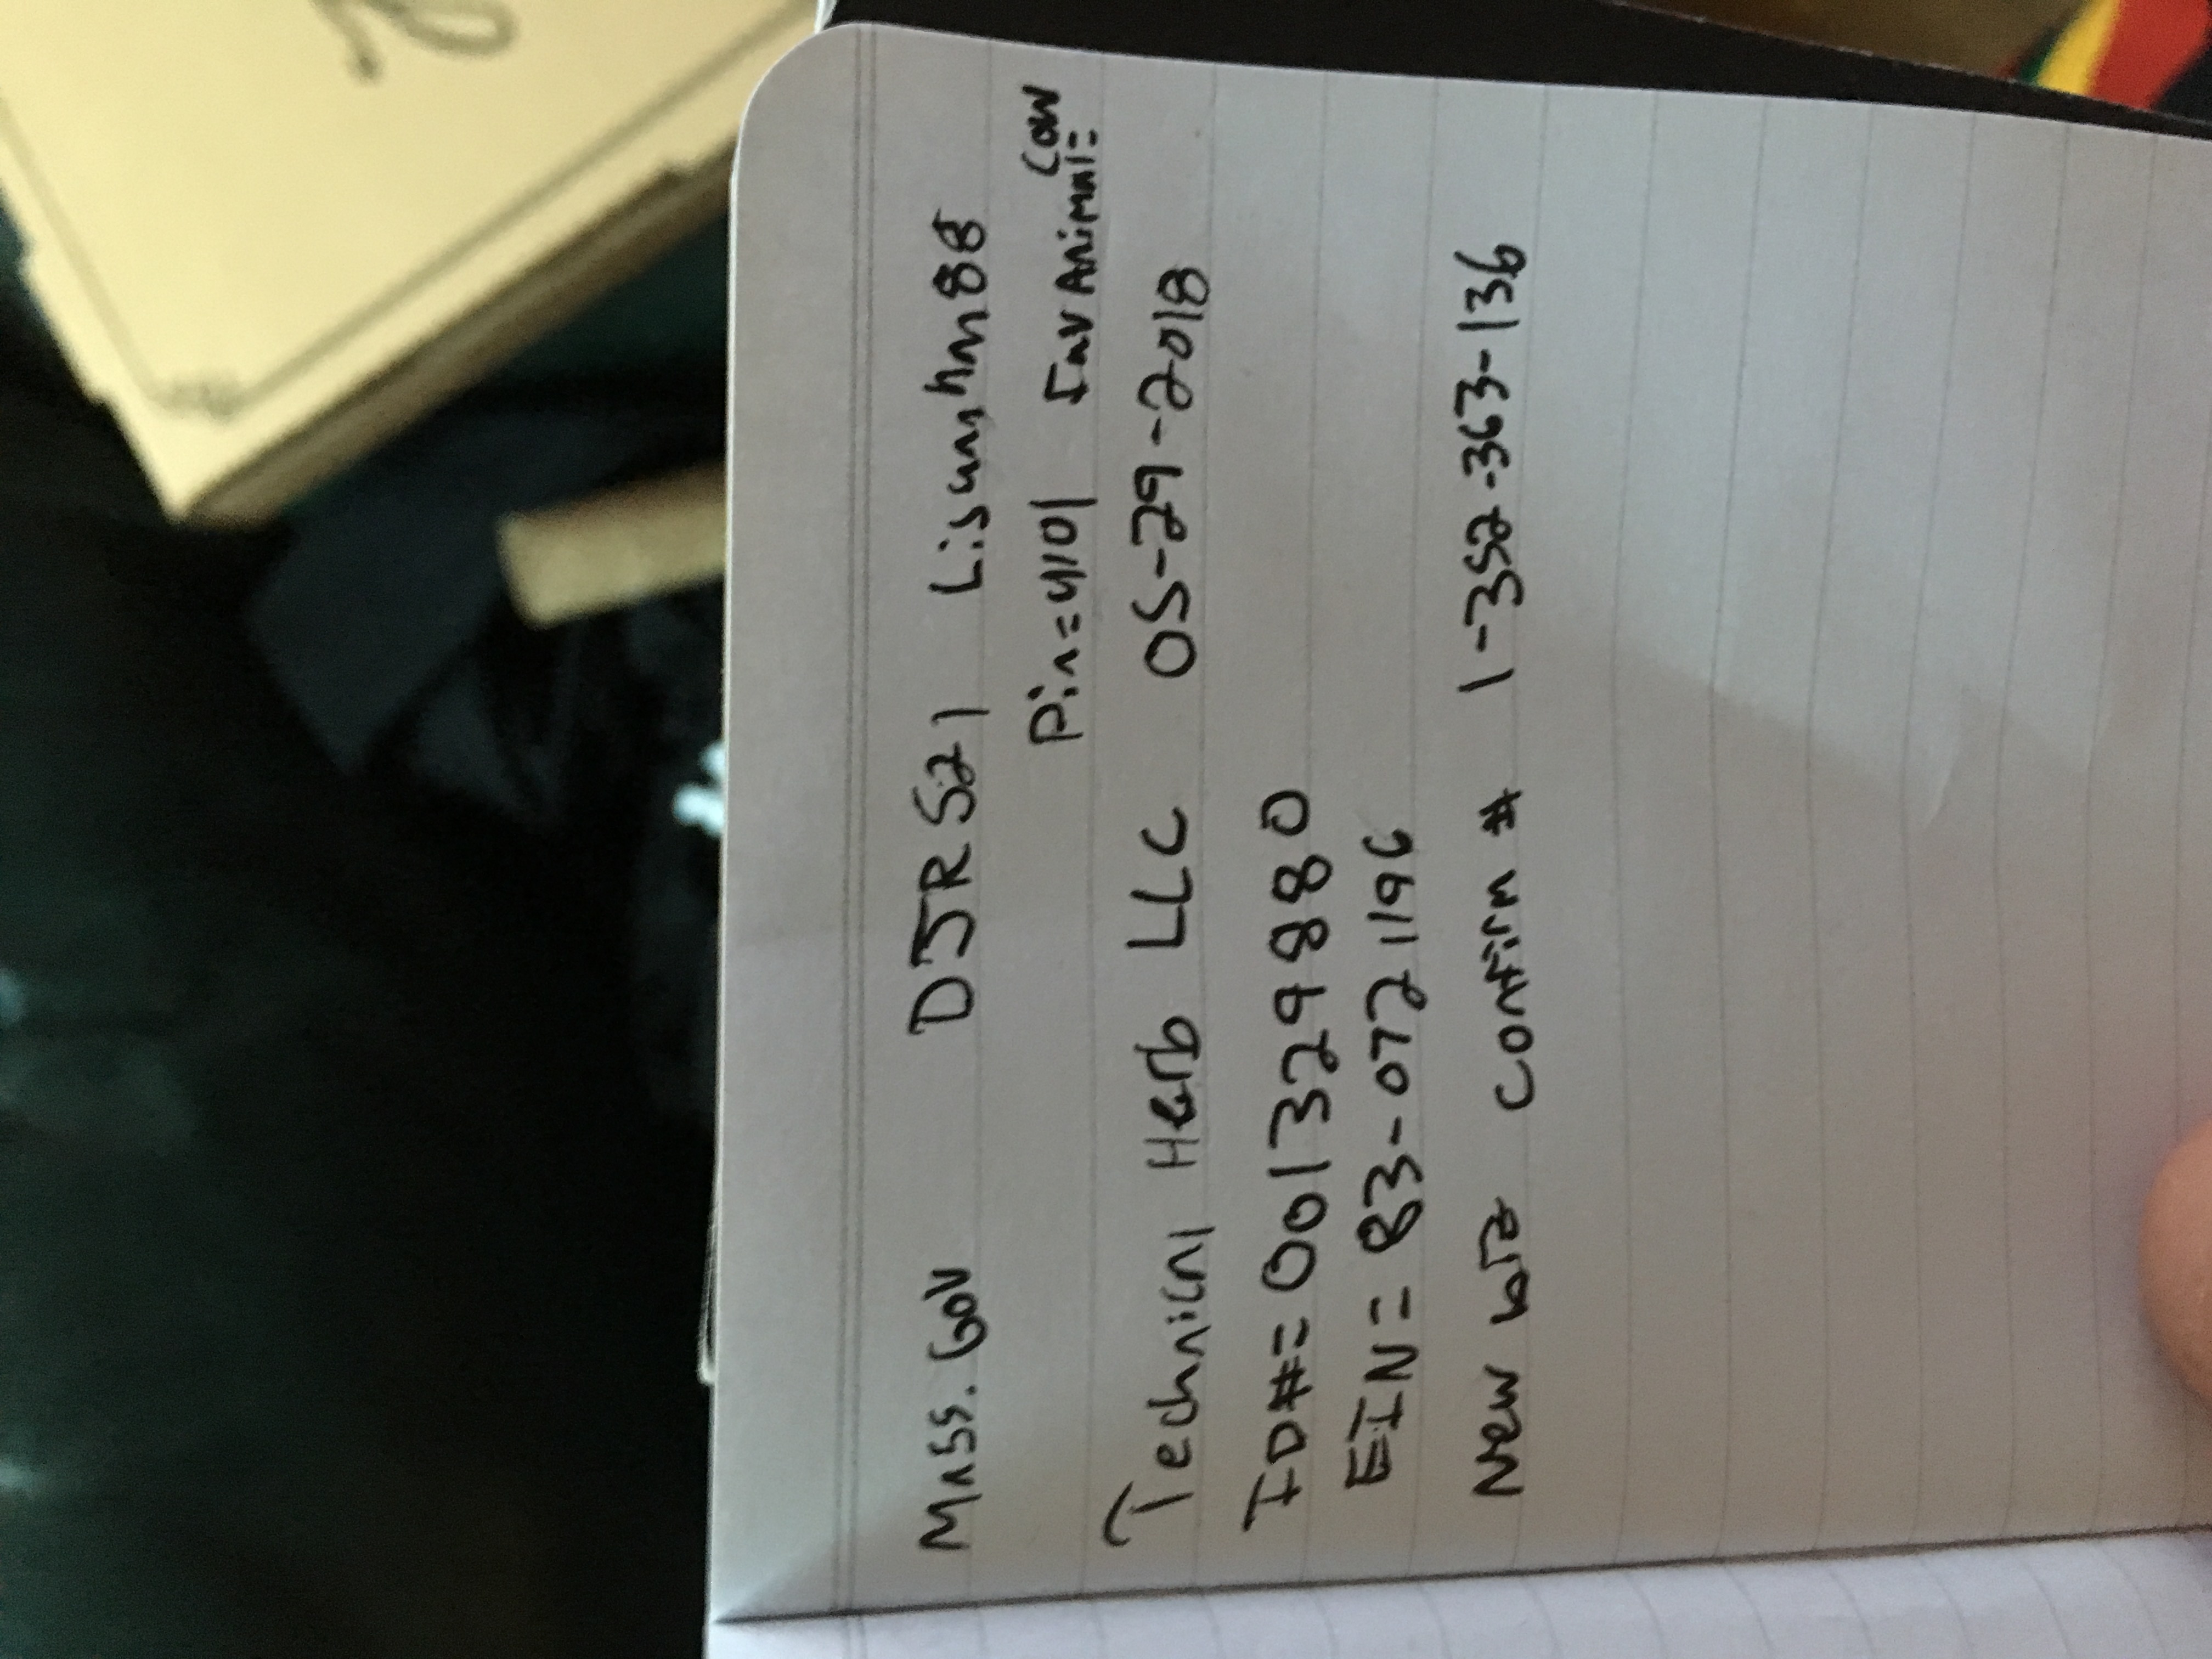 Mass. Gov DJR521
Pin=4101 Fav Animal= Cow
Technical Herb LLC 05-29-2018
ID#= 001329880
EIN= 83-0721196
New biz confirm # 1-352-363-136